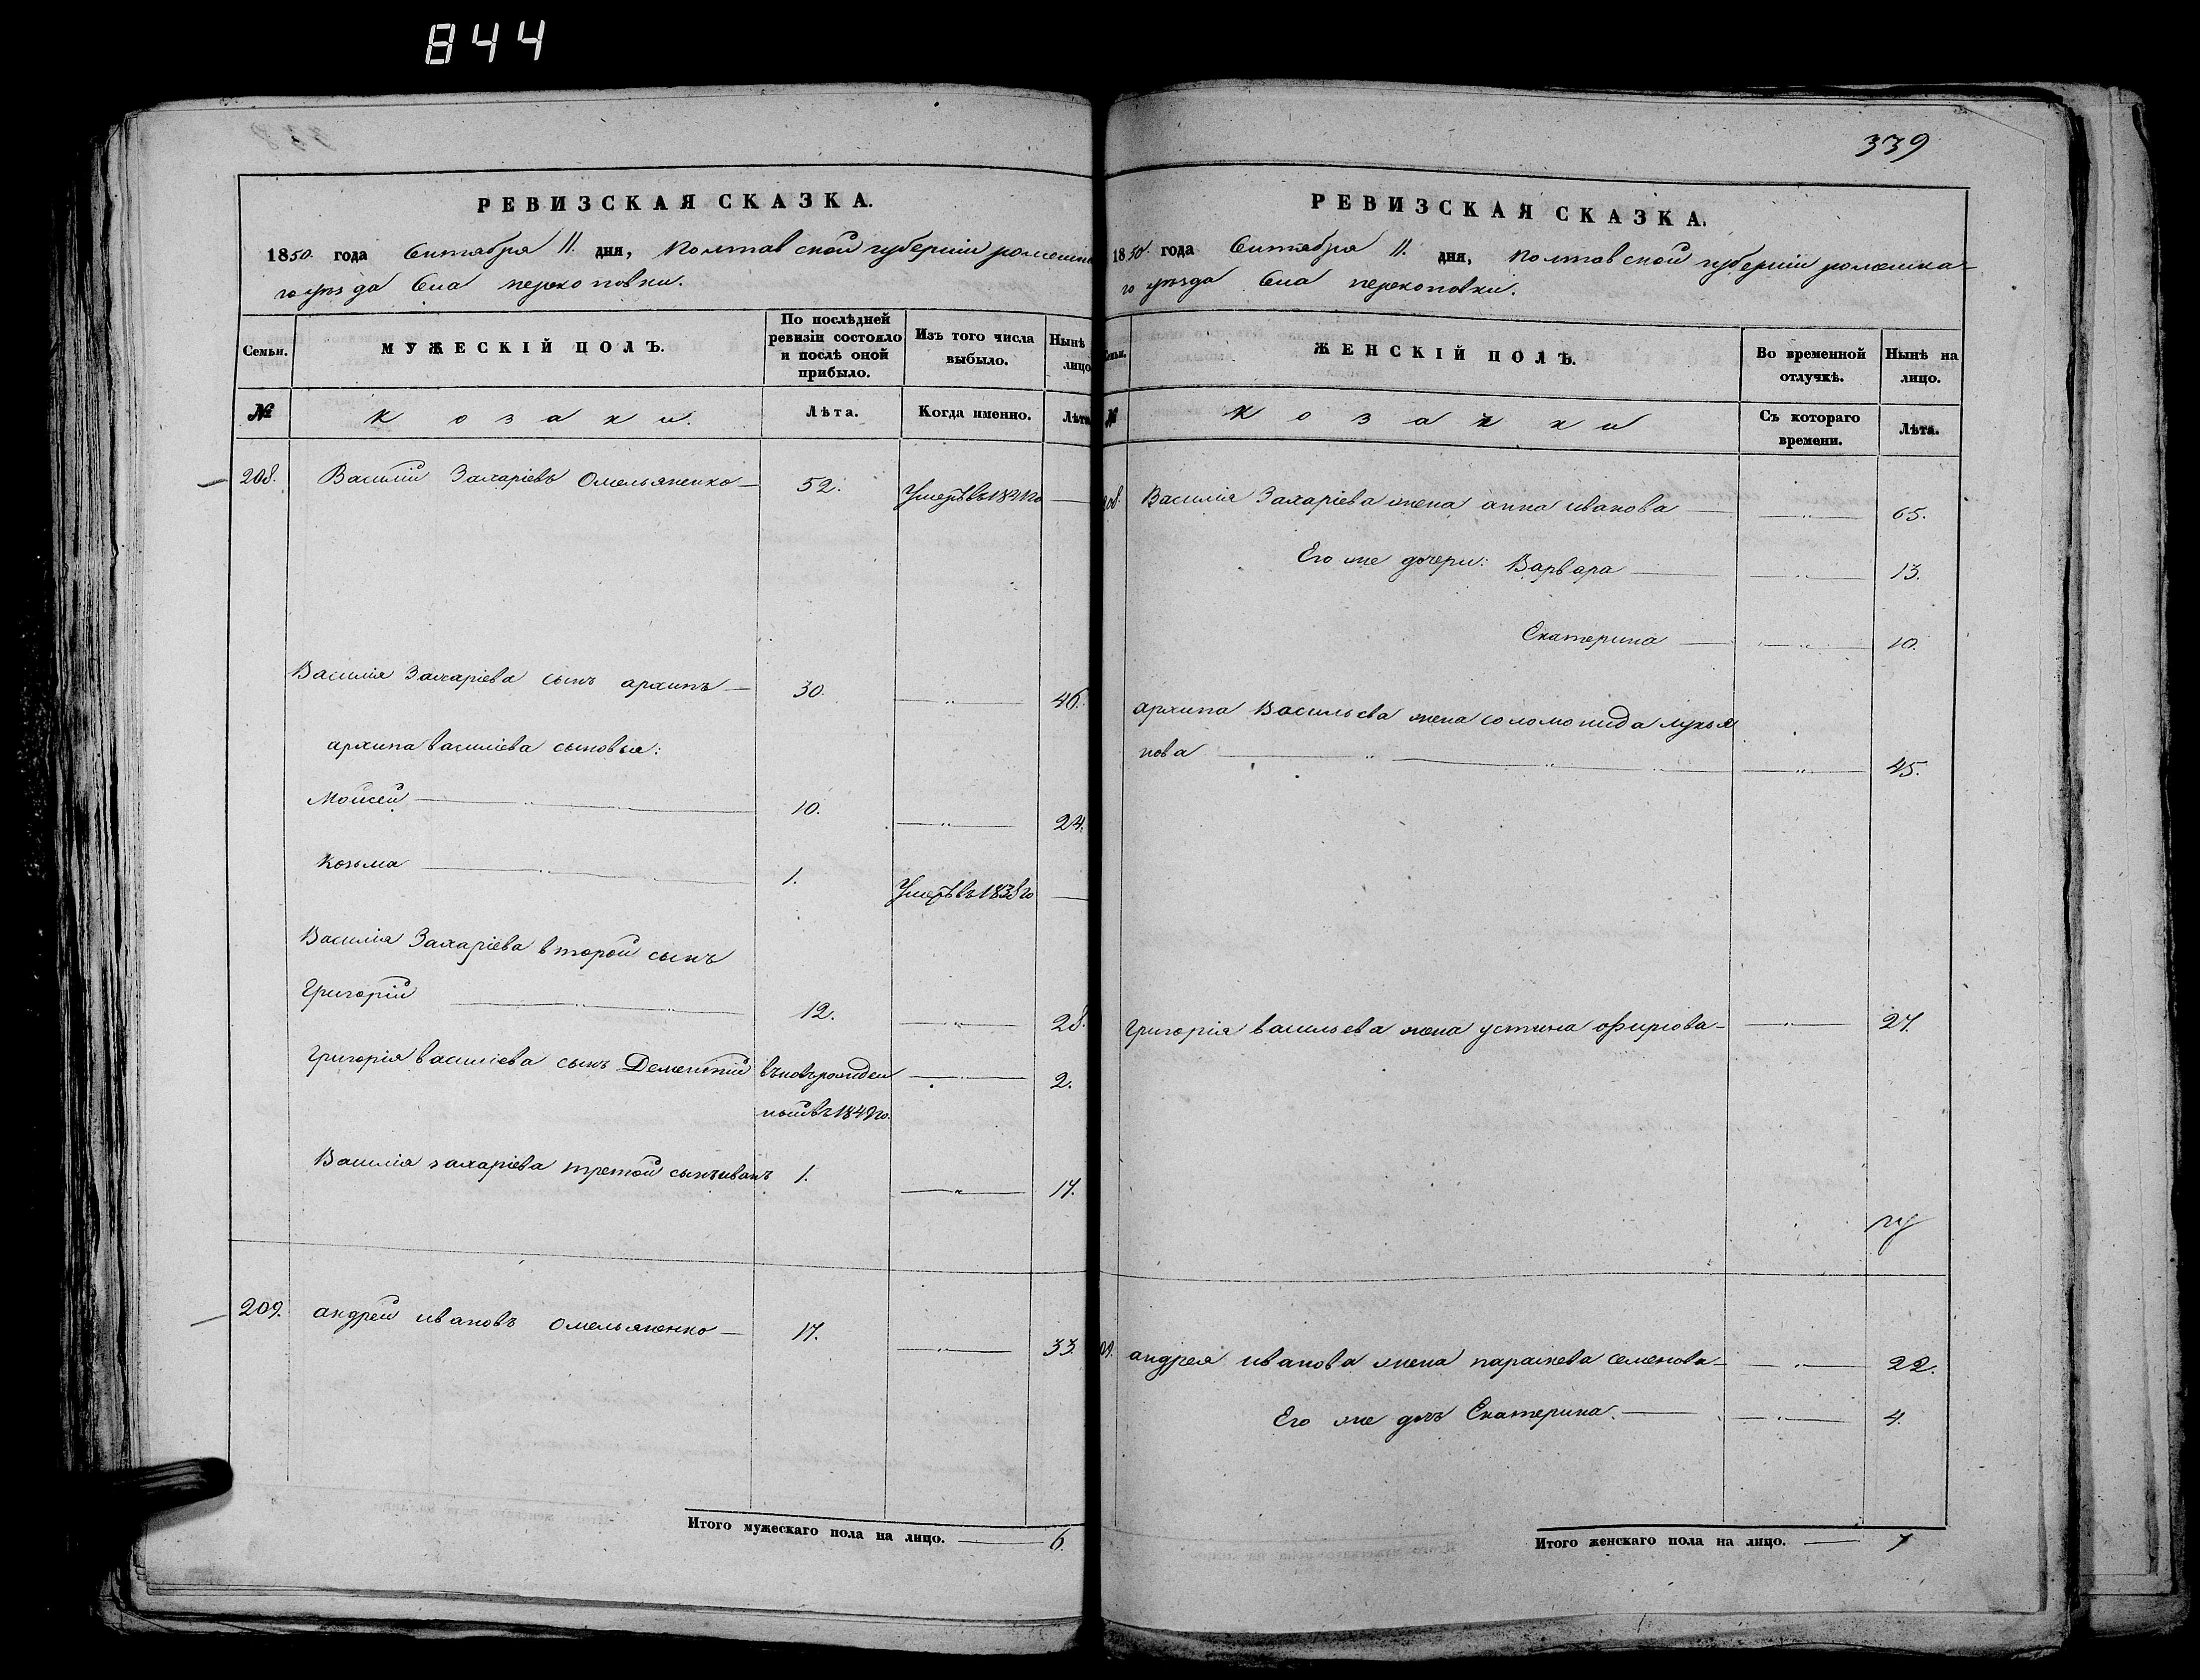 844
339
РЕВИЗСКАЯ СКАЗКА.
1850. года Сентября 11. дня, Полтавской губерніи роменска
го уѣзда Села перекоповки.
Семьи.
МУЖЕСКІЙ ПОЛЪ.
По послѣдней ревизіи состояло и послѣ оной прибыло.
Изъ того числа выбыло.
Нынѣ лицо
№
Козаки.
Лѣта.
Когда именно.
Лѣта
208. Василій Захаріевъ Омельяненко — 52. Умеръ въ 1841 го —
Василія Захаріева сынъ архипъ — 30. — " — 46.
архипа василіева сыновья:
Моисей — " — 10. — " — 24.
Козьма — " — 1. Умеръ въ 1838 го —
Василія Захаріева второй сынъ
Григорій — " — 12. — " — 28.
Григорія василіева сынъ Дементій въновърожден — " — 2.
ный въ 1849 го.
Василія захаріева третой сынъ иванъ 1. — " — 17.
209. андрей ивановъ омельяненко — 17. — " — 33.
Итого мужескаго пола на лицо. — 6.
РЕВИЗСКАЯ СКАЗКА.
1850. года Сентября 11. дня, Полтавской губерніи роменска-
го уѣзда Села перекоповки.
Семьи.
ЖЕНСКІЙ ПОЛЪ.
Во временной отлучкѣ.
Нынѣ на лицо.
№
Козачки
Съ котораго времени.
Лѣта.
208. Василія Захаріева жена анна иванова — — " — 65.
Его же дочери: Варвара — — " — 13.
Екатерина — — " — 10.
архипа Васильева жена соломонида лукья
нова — " — " — — " — 45.
Григорія васильева жена устина фирсова — — " — 27.
209. андрея иванова жена параскева семенова — — " — 22.
Его же дочь Екатерина. — — " — 4.
Итого женскаго пола на лицо. — 7